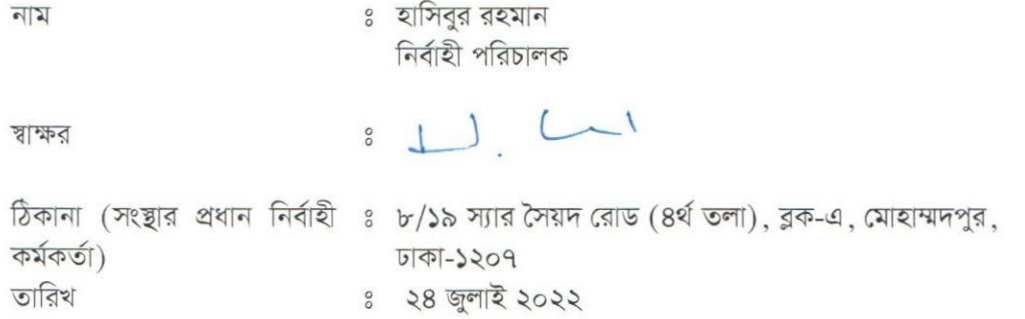 নাম : হাসিবুর রহমান
নির্বাহী পরিচালক
স্বাক্ষর :
ঠিকানা (সংস্থার প্রধান নির্বাহী : ৮/১৯ স্যার সৈয়দ রোড (৪র্থ তলা), ব্লক-এ, মোহাম্মদপুর,
কর্মকর্তা) ঢাকা-১২০৭
তারিখ : ২৪ জুলাই ২০২২